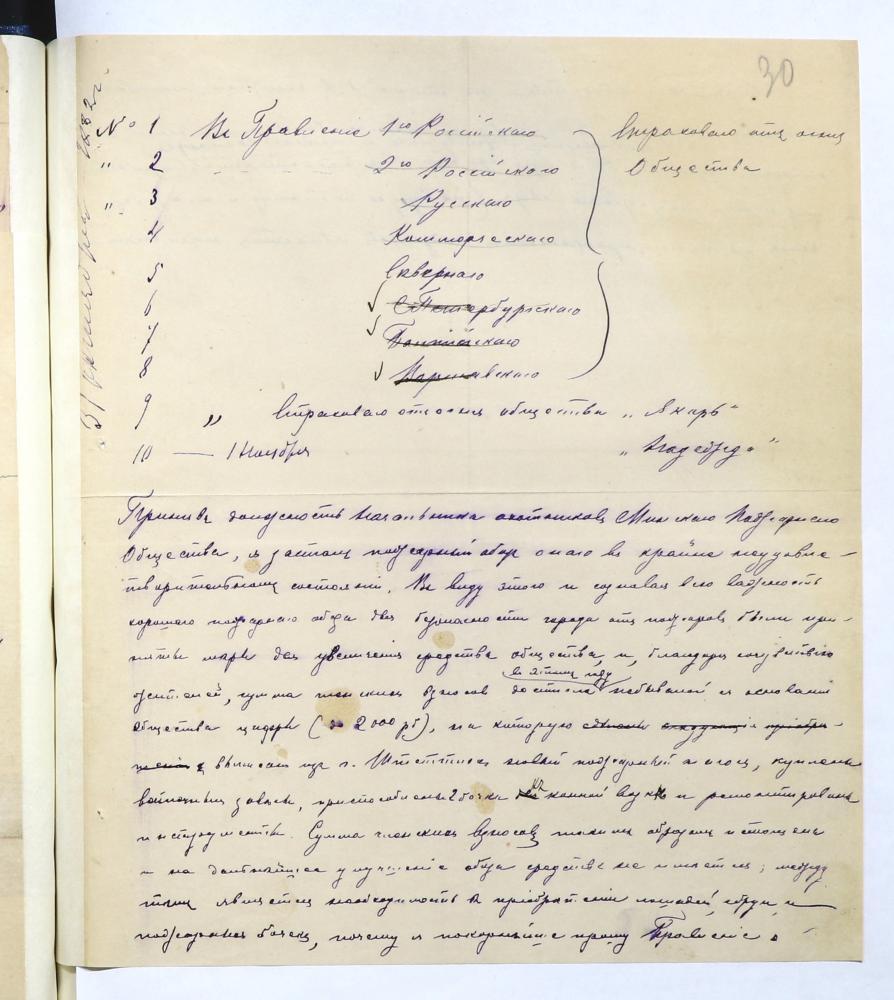 30
31 октября 1882 г.
№ 1 Въ Правленіе 1го Россійскаго Страховаго отъ огня
" 2 2го Россійскаго Общества
" 3 Русскаго
4 Коммерческаго
5 Сѣвернаго
6 С.Петербургскаго
7 Балтійскаго
8 Варшавскаго
9 " Страховаго отъ огня общества „Якорь"
10 — 1 Ноября „Надежда"
Принявъ должность Начальника охотниковъ Минскаго Пожарнаго
Общества, я засталъ пожарный обозъ онаго въ крайне неудовле-
творительномъ состояніи. Въ виду этого и сознавая всю важность
хорошаго пожарнаго обоза для безопасности города отъ пожаровъ были при-
няты мѣры для увеличенія средствъ общества, и, благодаря сочувствію
въ этомъ году
жителей, сумма членскихъ взносовъ достигла небывалой съ основанія
общества цифры (2000 рб), на которую
выписанъ изъ г. Штеттина новый пожарный насосъ, куплены
приспособлены 2 бочки къ конной возкѣ и ремонтированы
инструменты. Сумма членскихъ взносовъ такимъ образомъ истощена
и на дальнѣйшее улучшеніе обоза средствъ не имѣется; между
тѣмъ является необходимость въ пріобрѣтеніи лошадей, сбруи и
пожарныхъ бочекъ, почему я покорнѣйше прошу Правленіе